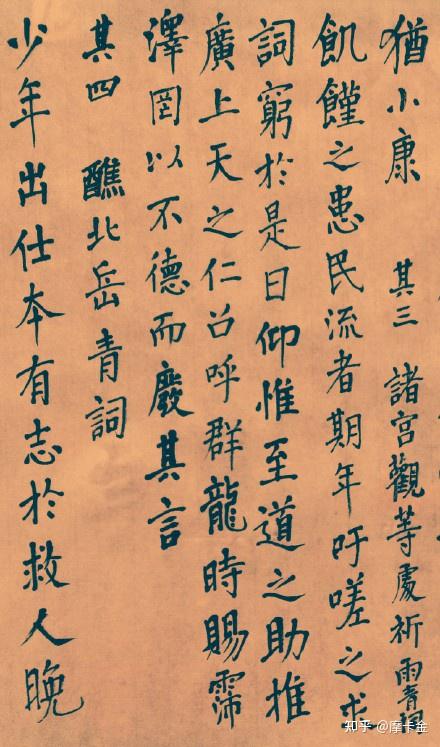 猶小康 其三 諸宮觀等處祈雨青詞
飢饉之患民流者期年吁嗟之求
詞窮於是日仰惟至道之助推
廣上天之仁召呼群龍時賜霈
澤罔以不德而廢其言
其四 醮北岳青詞
少年出仕本有志於救人晚
知乎 @摩卡金